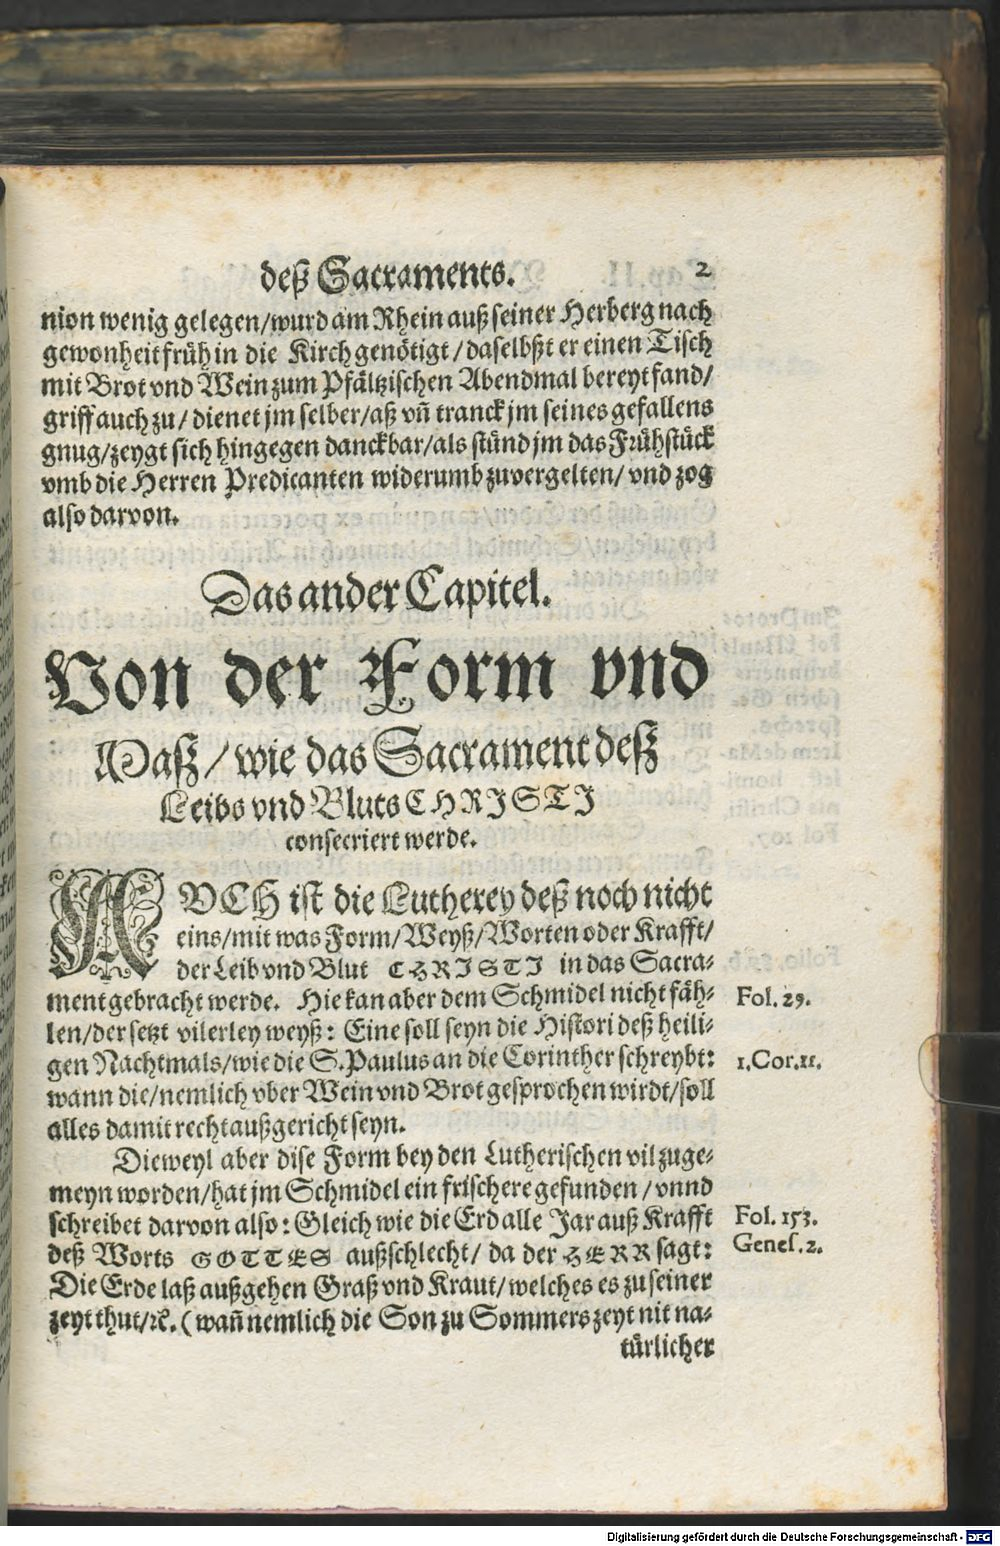 deß Sacraments. 2
nion wenig gelegen/wurd am Rhein auß seiner Herberg nach
gewonheit früh in die Kirch genötigt/daselbßt er einen Tisch
mit Brot vnd Wein zum Pfältzischen Abendmal bereyt fand/
griff auch zu/dienet jm selber/aß vñ tranck jm seines gefallens
gnug/zeygt sich hingegen danckbar/als stünd jm das Frühstück
vmb die Herren Predicanten widerumb zuvergelten/vnd zog
also darvon.
Das ander Capitel.
Von der Form vnd
Maß/wie das Sacrament deß
Leibs vnd Bluts CHRISTI
consecriert werde.
AVCH ist die Lutherey deß noch nicht
eins/mit was Form/Weyß/Worten oder Krafft/
der Leib vnd Blut CHRISTI in das Sacra-
ment gebracht werde. Hie kan aber dem Schmidel nicht fäh-
Fol. 29.
len/der setzt vilerley weyß: Eine soll seyn die Histori deß heili-
gen Nachtmals/wie die S. Paulus an die Corinther schreybt:
1.Cor.11.
wann die/nemlich vber Wein vnd Brot gesprochen wirdt/soll
alles damit recht außgericht seyn.
Dieweyl aber dise Form bey den Lutherischen vil zuge-
meyn worden/hat jm Schmidel ein frischere gefunden/vnnd
schreibet darvon also: Gleich wie die Erd alle Jar auß Krafft
Fol. 153.
deß Worts GOTTES außschlecht/da der HERR sagt:
Genes. 2.
Die Erde laß außgehen Graß vnd Kraut/welches es zu seiner
zeyt thut/ꝛc. (wañ nemlich die Son zu Sommerszeyt nit na-
türlicher
Digitalisierung gefördert durch die Deutsche Forschungsgemeinschaft - DFG